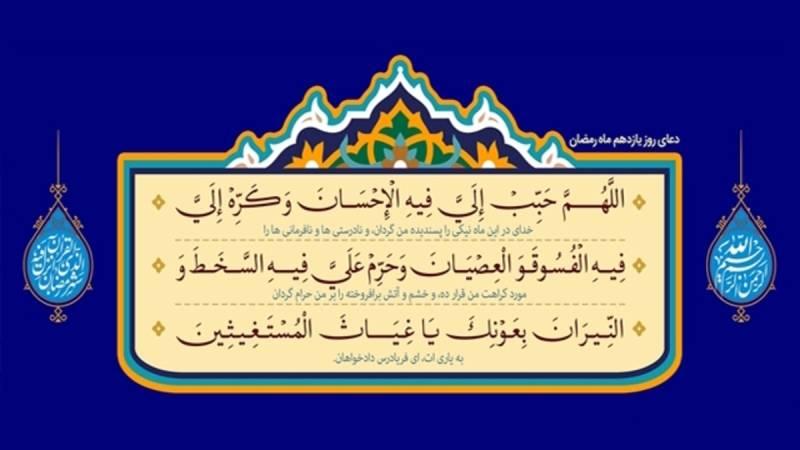 دعای روز یازدهم ماه رمضان
اللَّهُمَّ حَبِّبْ إِلَيَّ فِيهِ الْإِحْسَانَ وَ كَرِّهْ إِلَيَّ
خدای در این ماه نیکی را پسندیده من گردان، و نادرستی ها و نافرمانی ها را
فِيهِ الْفُسُوقَ وَ الْعِصْيَانَ وَ حَرِّمْ عَلَيَّ فِيهِ السَّخَطَ وَ
مورد کراهت من قرار ده، و خشم و آتش برافروخته را بر من حرام گردان
النِّيرَانَ بِعَوْنِكَ يَا غِيَاثَ الْمُسْتَغِيثِينَ
به یاری ات، ای فریادرس دادخواهان.
بسم الله الرحمن الرحیم
شهر رمضان الذی انزل فیه القرآن